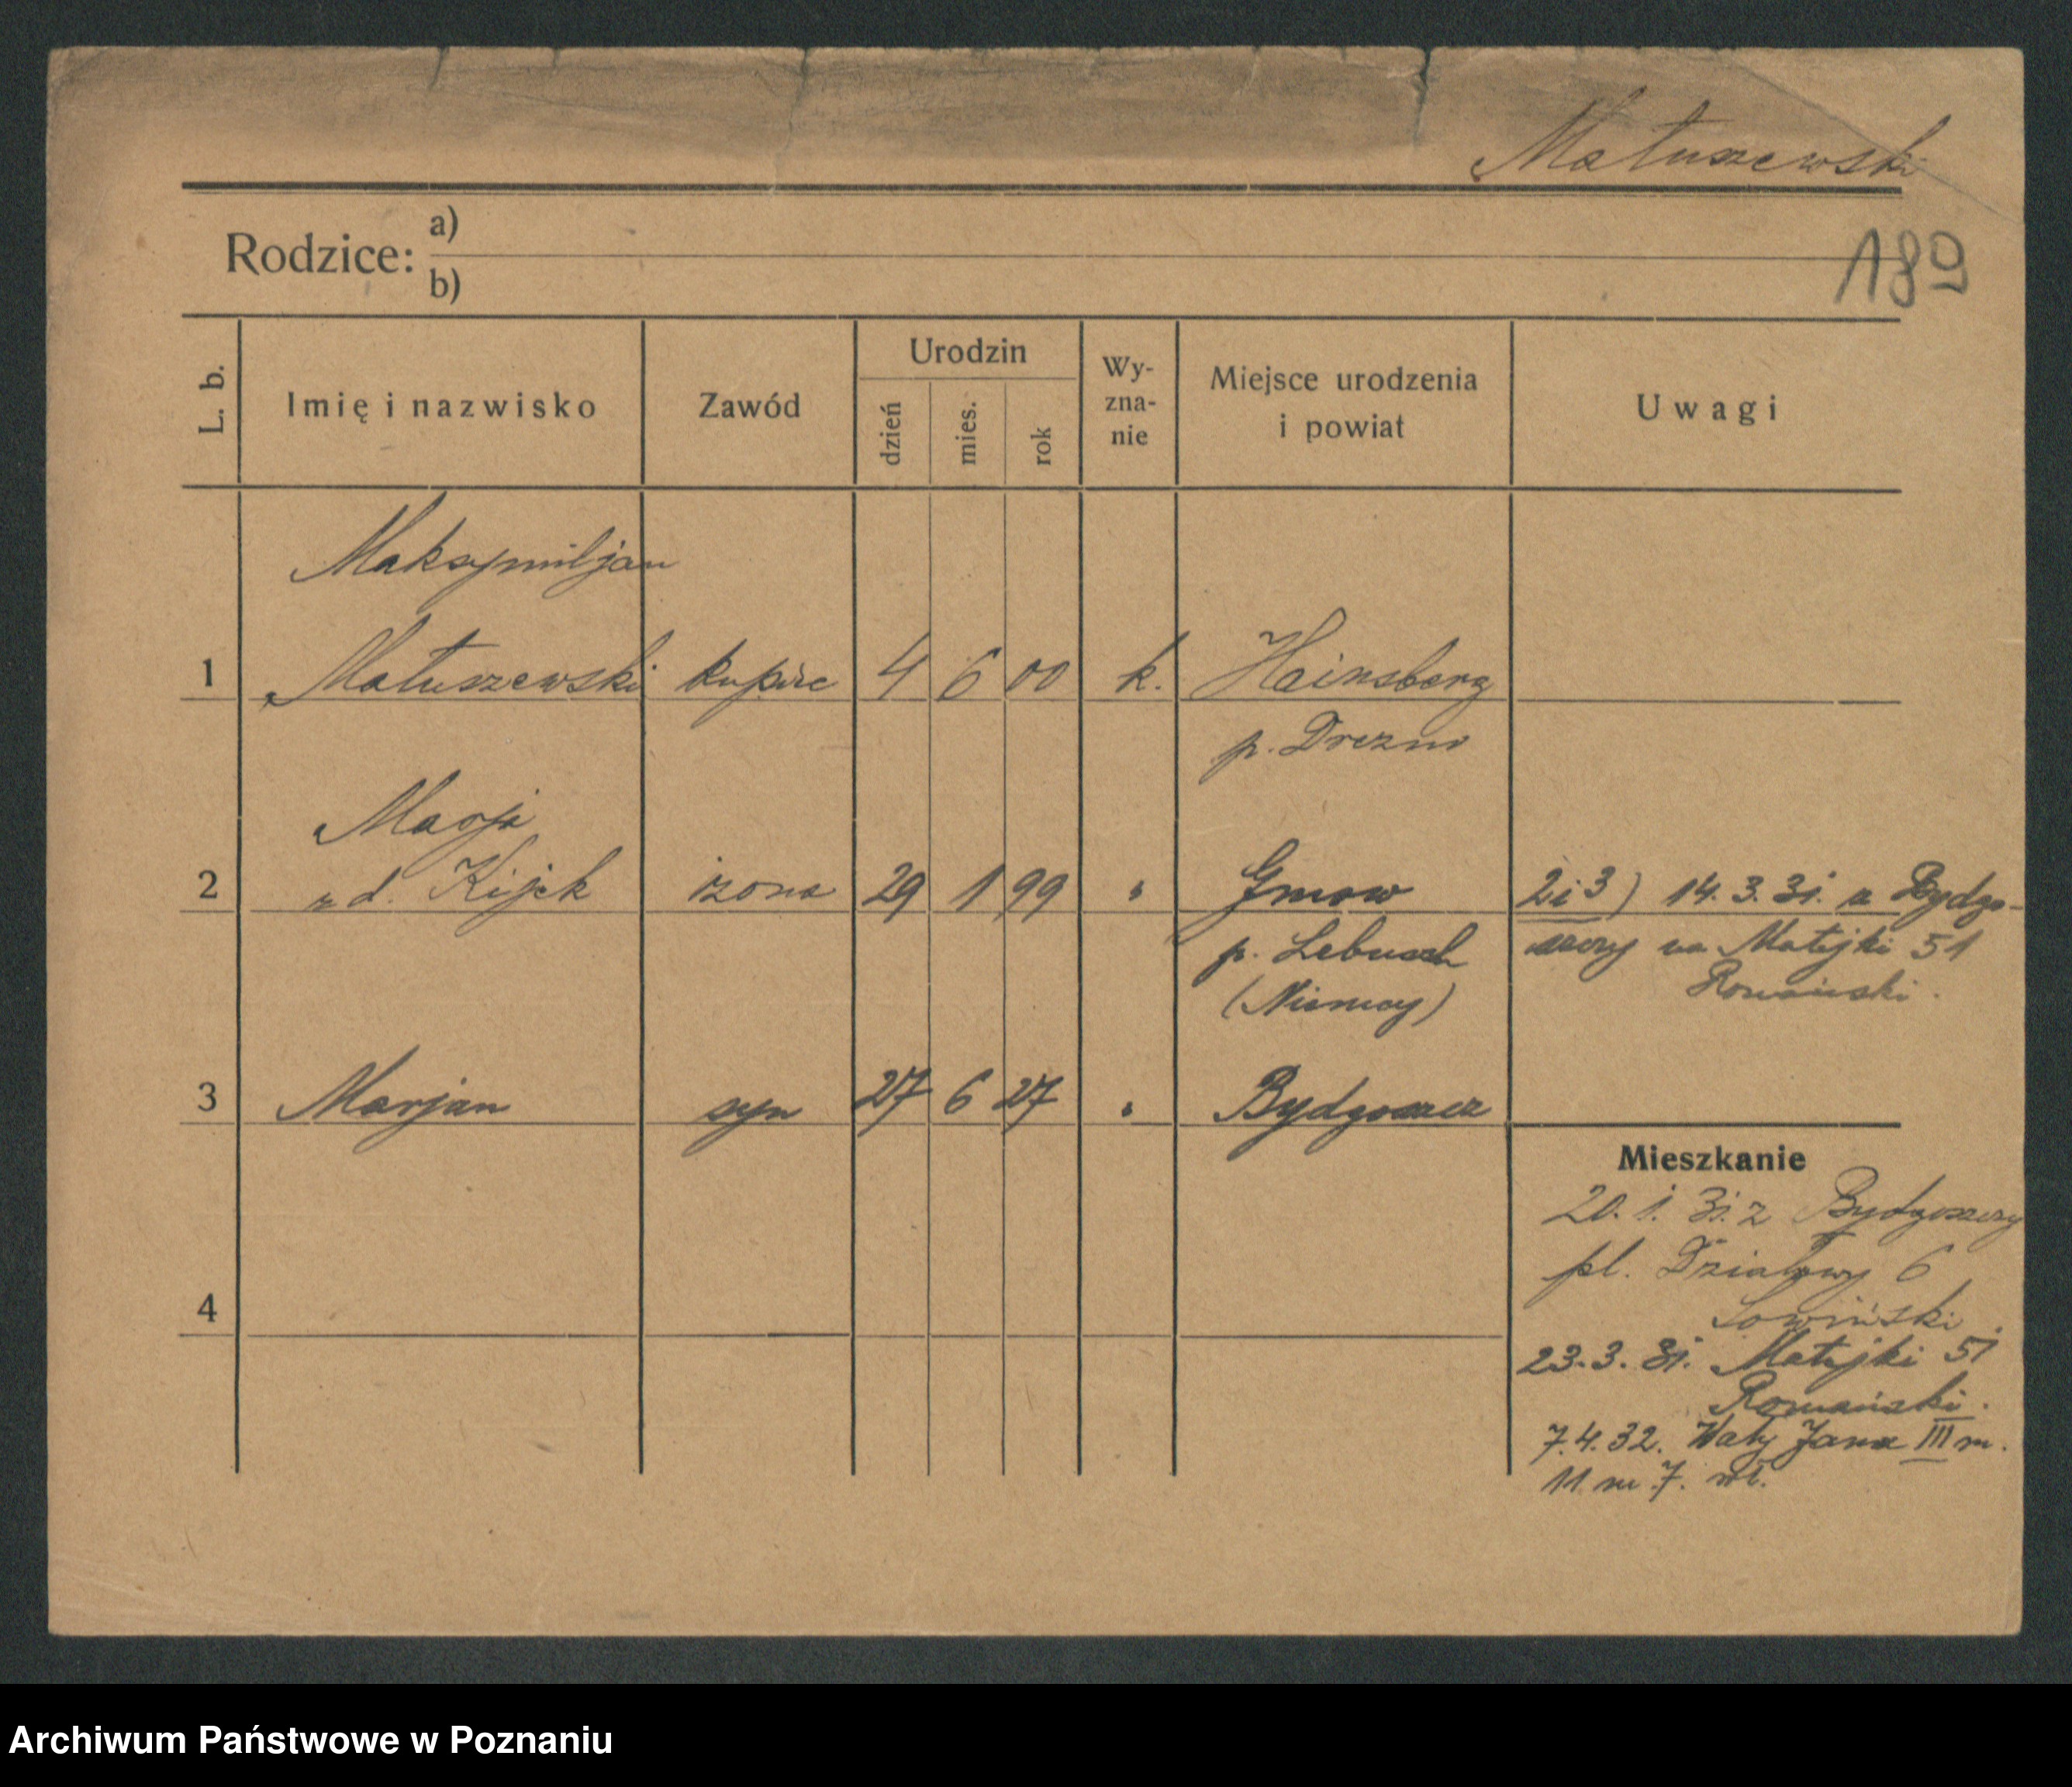 Matuszewski
Rodzice: a)
b)
189
L. b.
Imię i nazwisko
Zawód
Urodzin
dzień
mies.
rok
Wy-
zna-
nie
Miejsce urodzenia
i powiat
Uwagi
Maksymiljan
1 Matuszewski kupiec 4 6 00 k. Hainsberg
p. Drezno
Marja
2 zd. Kijek żona 29 1 99 " Gmow 2 i 3) 14.3.31. z Bydgo-
p. Lebusch szczy na Matejki 51
(Niemcy) Romański.
3 Marjan syn 27 6 27 " Bydgoszcz
Mieszkanie
20. 1. 31. z Bydgoszczy
pl. Działowy 6
4
Sowiński.
23. 3. 31. Matejki 51
Romański.
7.4.32. Wały Jana III n.
11 m 7. wł.
Archiwum Państwowe w Poznaniu